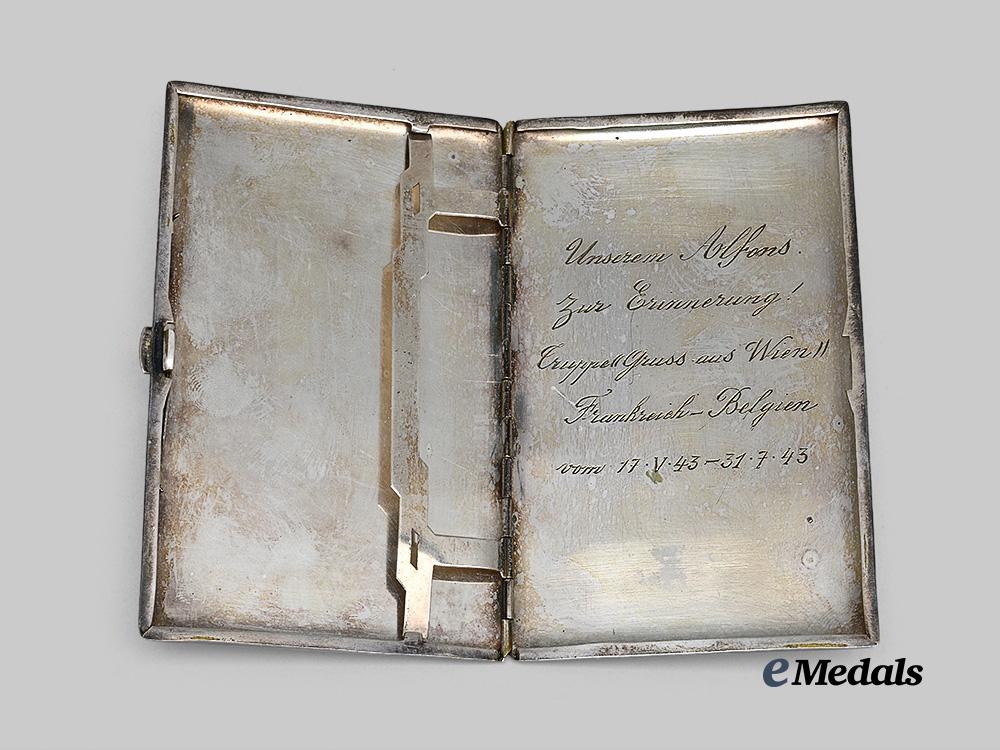 Unserem Alfons.
Zur Erinnerung!
Truppe "Gruss aus Wien"
Frankreich - Belgien
vom 17.V.43 - 31.7.43
eMedals